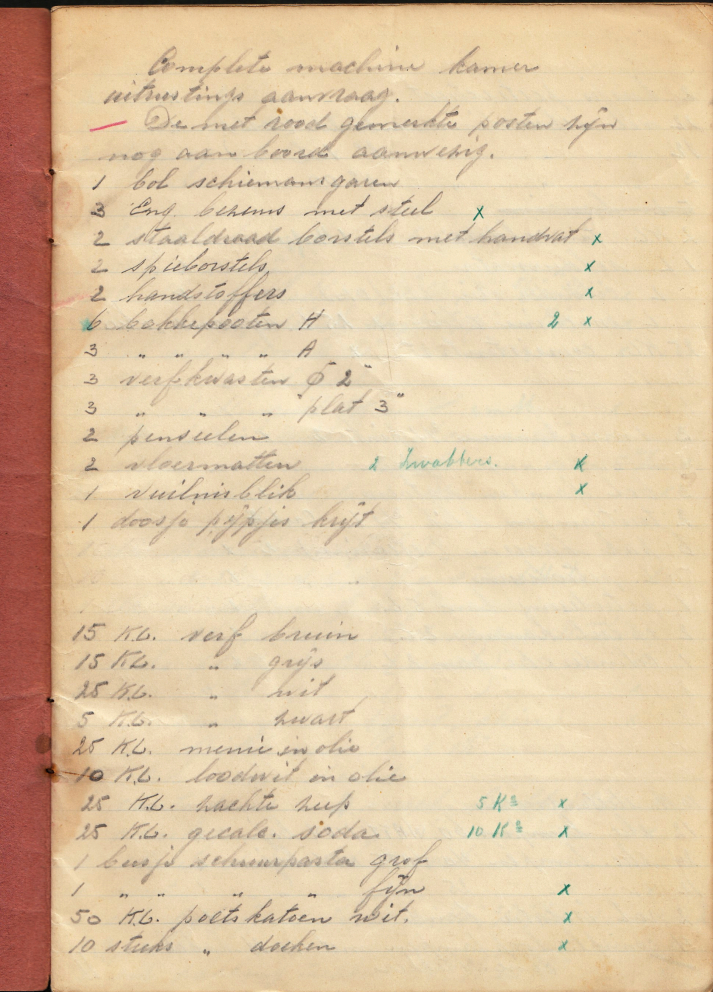 Complete machine kamer
uitrustings aanvraag.
— De met rood gemerkte posten zijn
nog aan boord aanwezig.
1 bol schiemansgaren
3 Eng. bezems met steel x
2 staaldraad borstels met handvat x
2 spieborstels x
2 handstoffers x
6 bokkepooten H 2 x
3 " " " " A
3 verfkwasten ϕ 2"
3 " " " plat 3"
2 penseelen
2 vloermatten 2 Zwabbers. x
1 vuilnisblik x
1 doosje pijpjes krijt
15 K.G. verf bruin
15 K.G. " grijs
25 K.G. " wit
5 K.G. " zwart
25 K.G. menie in olie
10 K.G. loodwit in olie
25 K.G. zachte zeep 5 Kg x
25 K.G. gecalc. soda 10 Kg x
1 busje schuurpasta grof
1 " " " " fijn x
50 K.G. poetskatoen wit. x
10 stuks " doeken x